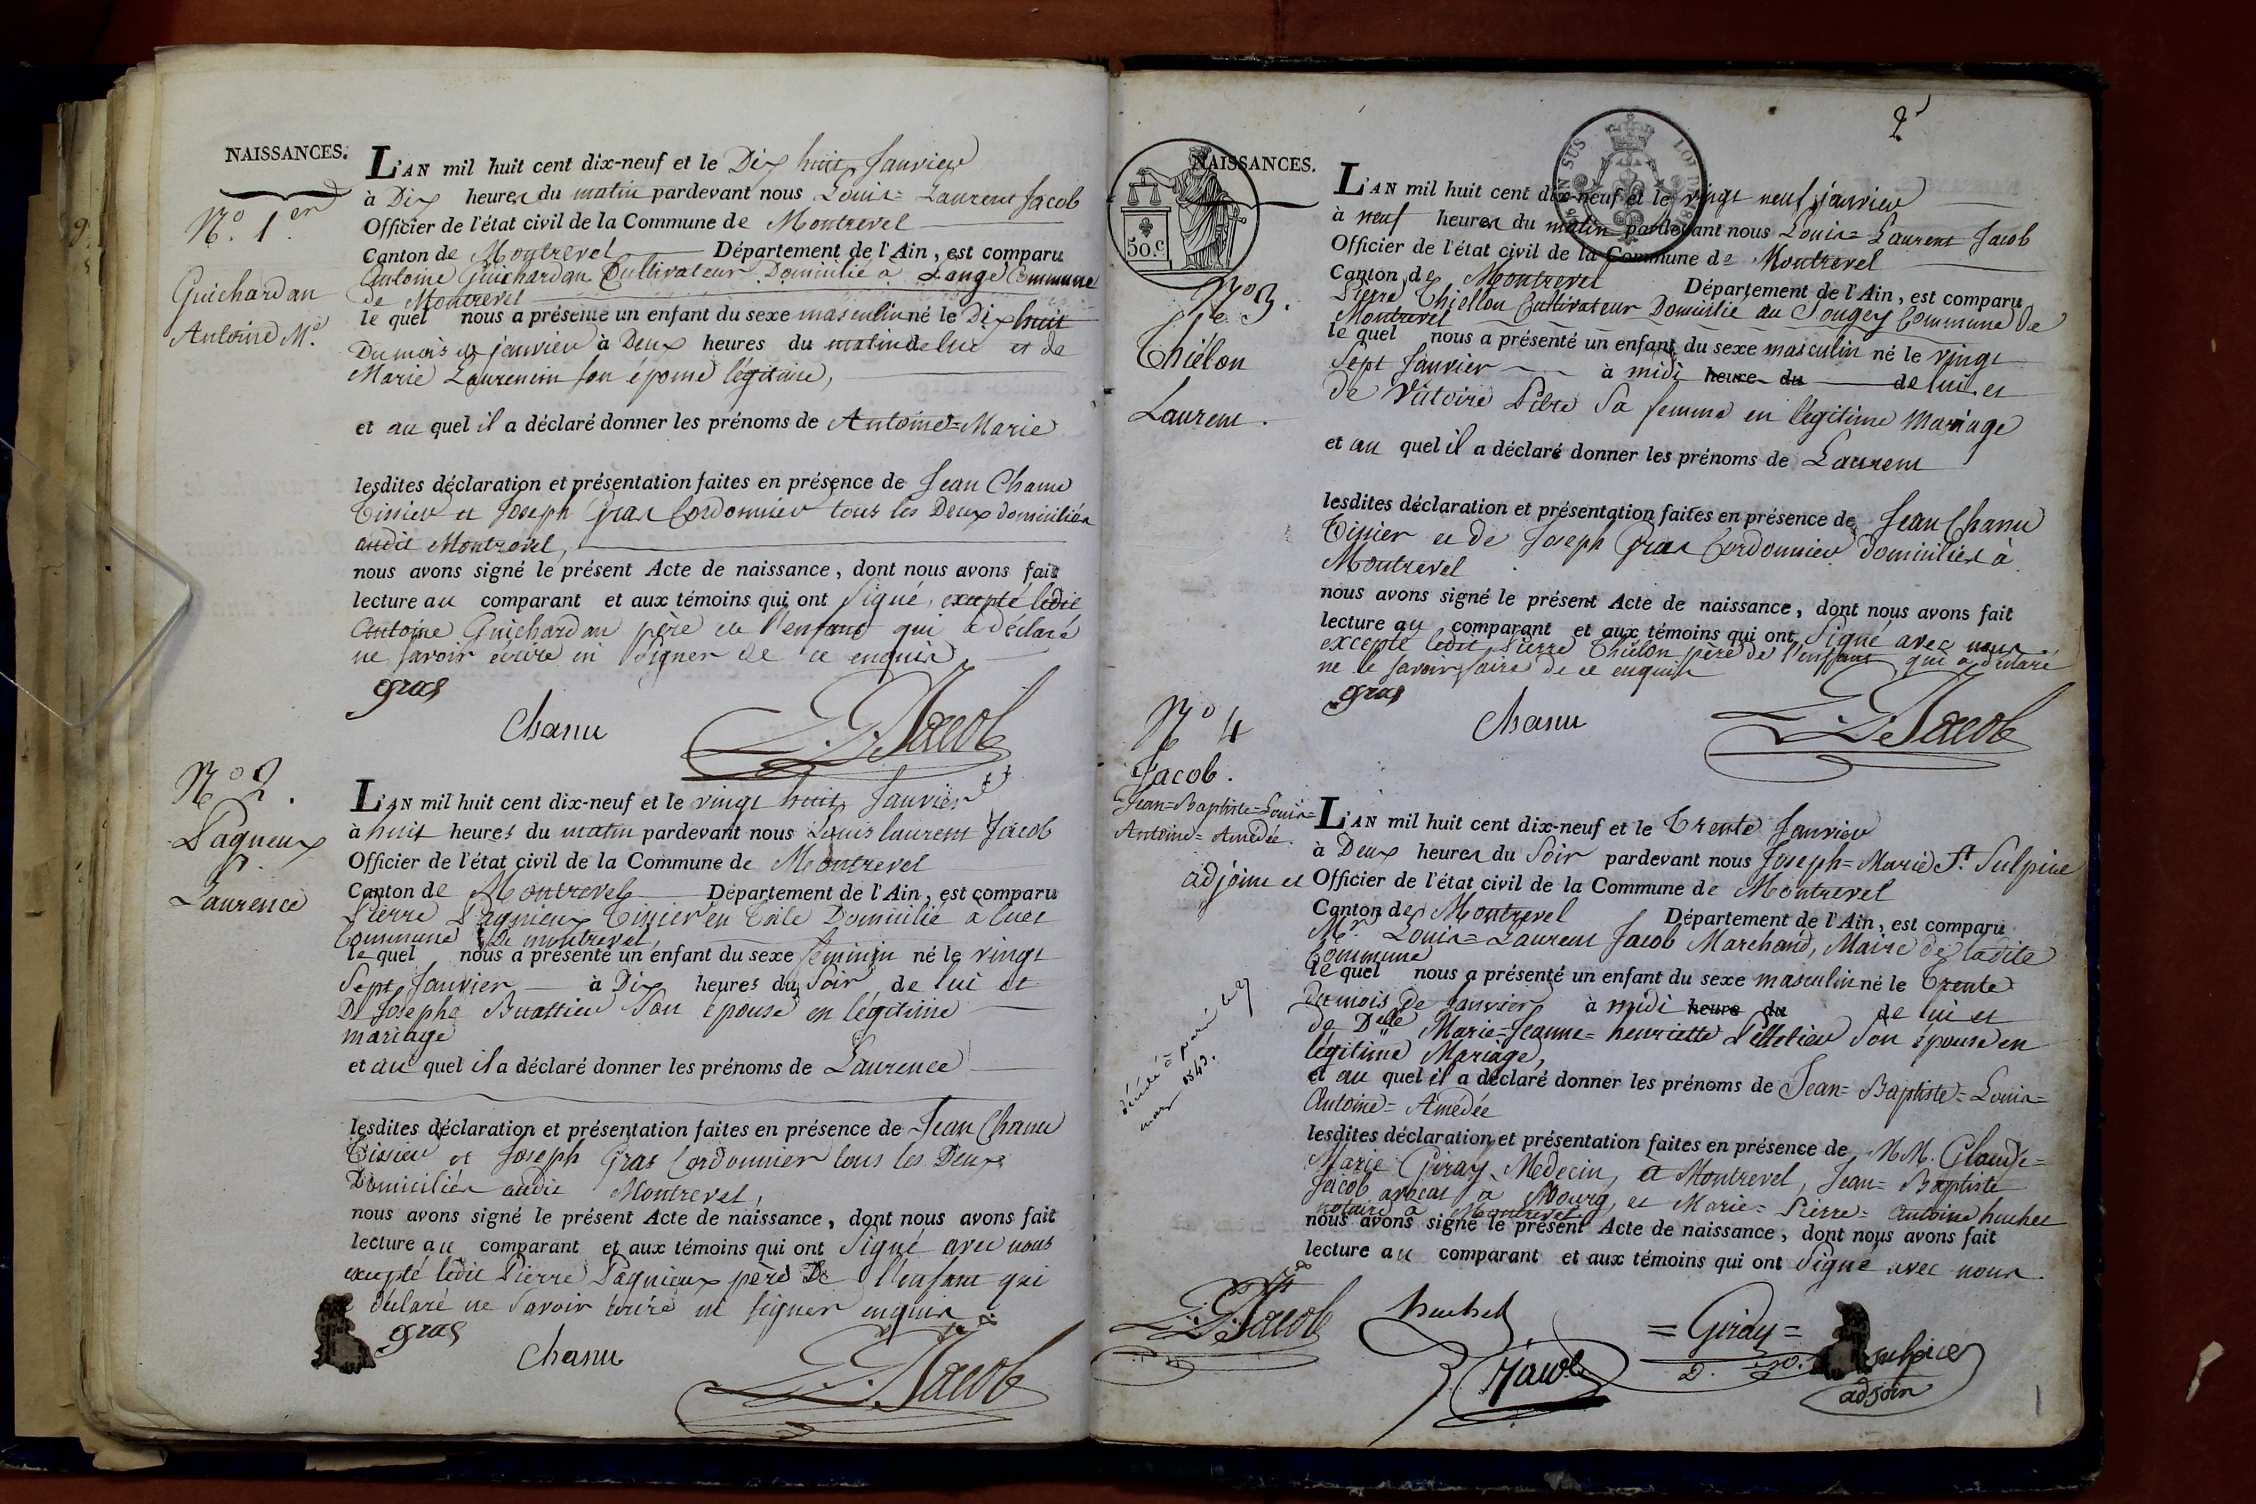 NAISSANCES.
N.º 1.er
Guichardan
Antoine M.e
L'AN mil huit cent dix-neuf et le Dix huit Janvier
à Dix heures du matin pardevant nous Louis=Laurent Jacob
Officier de l'état civil de la Commune de Montrevel
Canton de Montrevel Département de l'Ain, est comparu
Antoine Guichardan Cultivateur Domicilié à Lange Commune
de Montrevel
le quel nous a présenté un enfant du sexe masculin né le Dix huit
Du mois de janvier à Deux heures du matin de lui et de
Marie Laurencin son épouse légitime,
et au quel il a déclaré donner les prénoms de Antoine=Marie
lesdites déclaration et présentation faites en présence de Jean Chanu
Tissier et Joseph Gras Cordonnier tous les Deux domiciliés
audit Montrevel,
nous avons signé le présent Acte de naissance, dont nous avons fait
lecture au comparant et aux témoins qui ont Signé, excepté ledit
Antoine Guichardan père de l'enfant qui a déclaré
ne savoir écrire ni Signer de ce enquis
gras
Chanu
L. L. Jacob
Nº 2.
Pagneux
Laurence
L'AN mil huit cent dix-neuf et le vingt huit Janvier
à huit heures du matin pardevant nous Louis laurent Jacob
Officier de l'état civil de la Commune de Montrevel
Canton de Montrevel Département de l'Ain, est comparu
Pierre Pagnieux Tissier en Toile Domicilié à
Commune De montrevel,
le quel nous a présenté un enfant du sexe feminin né le vingt
Sept Janvier à Dix heures du Soir de lui et
De Josephe Buattier Son épouse en légitime
mariage
et au quel il a déclaré donner les prénoms de Laurence
lesdites déclaration et présentation faites en présence de Jean Chanu
Tissier et Joseph Gras Cordonnier tous les Deux
Domiciliés audit Montrevel,
nous avons signé le présent Acte de naissance, dont nous avons fait
lecture au comparant et aux témoins qui ont Signé avec nous
excepté ledit Pierre Pagnieux père De l'enfant qui
déclaré ne Savoir écrire ni signer enquis
gras
Chanu
L. L. Jacob
2
NAISSANCES.
50.c
LOI DE 1816
Nº 3.
Thiélon
Laurent.
L'AN mil huit cent dix-neuf et le vingt neuf janvier
à neuf heures du matin pardevant nous Louis=Laurent Jacob
Officier de l'état civil de la Commune de Montrevel
Canton de Montrevel Département de l'Ain, est comparu
Pierre Thiellon Cultivateur Domicilié au Sougey Commune de
Montrevel
le quel nous a présenté un enfant du sexe masculin né le vingt
Sept Janvier à midi heure du de lui et
de Victoire Sa femme en légitime mariage
et au quel il a déclaré donner les prénoms de Laurent
lesdites déclaration et présentation faites en présence de Jean Chanu
Tissier et de Joseph Gras Cordonnier domiciliés à
Montrevel
nous avons signé le présent Acte de naissance, dont nous avons fait
lecture au comparant et aux témoins qui ont Signé avec nous
excepté ledit Pierre Thielon père de l'enfant qui a déclaré
ne le savoir faire de ce enquis
gras
Chanu
L. L. Jacob
Nº 4
Jacob.
Jean=Baptiste=Louis=
Antoine=Amédée.
adjoint et
décédé à paris le
mars 1843.
L'AN mil huit cent dix-neuf et le Trente Janvier
à Deux heures du Soir pardevant nous Joseph=Marie St. Sulpice
Officier de l'état civil de la Commune de Montrevel
Canton de Montrevel Département de l'Ain, est comparu
Mr. Louis=Laurent Jacob Marchand, Maire de ladite
Commune
le quel nous a présenté un enfant du sexe masculin né le Trente
du mois de Janvier à midi heure du de lui et
de Delle Marie=Jeanne=henriette Son épouse en
légitime Mariage,
et au quel il a déclaré donner les prénoms de Jean=Baptiste=Louis=
Antoine=Amédée
lesdites déclaration et présentation faites en présence de MM. Claude=
Marie Giray Medecin, à Montrevel, Jean=Baptiste
Jacob avocat à Bourg, et Marie=Pierre=Antoine huchet
notaire à Montrevel
nous avons signé le présent Acte de naissance, dont nous avons fait
lecture au comparant et aux témoins qui ont Signé avec nous.
L. L. Jacob
huchet
Jacob
=Giray=
D. m.
sulpice
adjoin